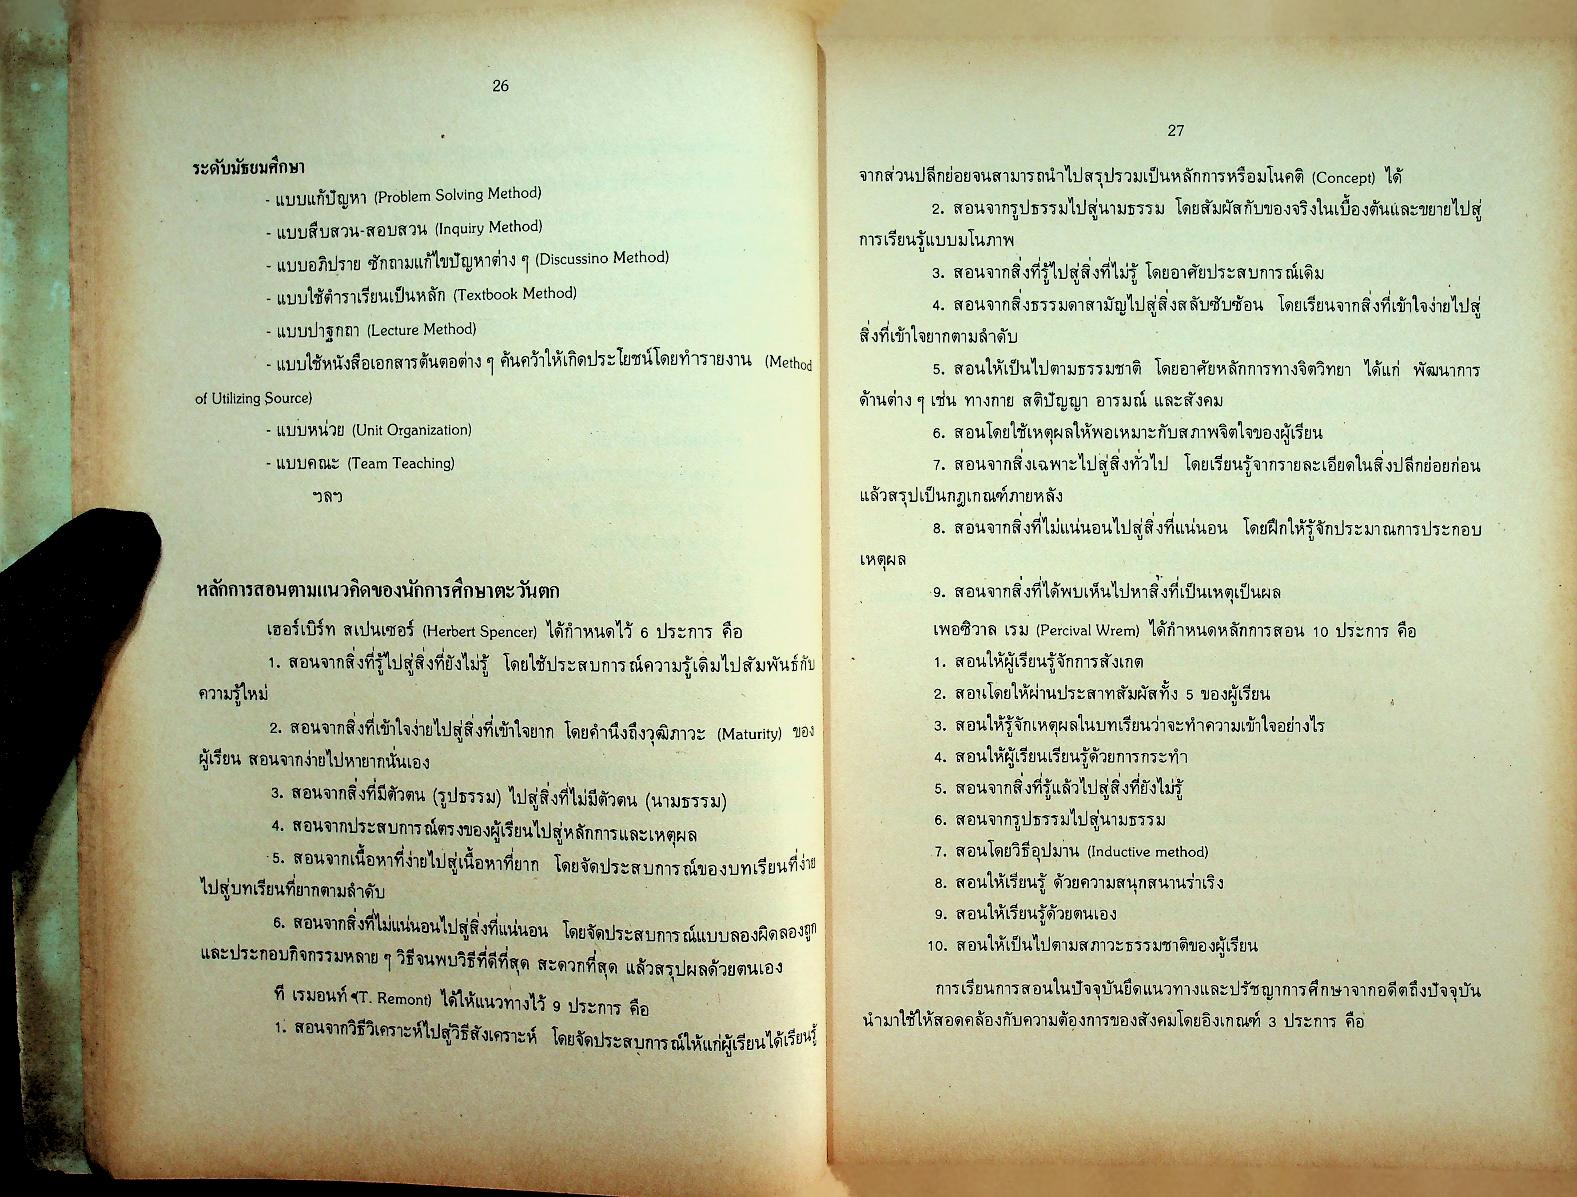 26
ระดับมัธยมศึกษา
- แบบแก้ปัญหา (Problem Solving Method)
- แบบสืบสวน-สอบสวน (Inquiry Method)
- แบบอภิปราย ซักถามแก้ไขปัญหาต่าง ๆ (Discussino Method)
- แบบใช้ตำราเรียนเป็นหลัก (Textbook Method)
- แบบปาฐกถา (Lecture Method)
- แบบใช้หนังสือเอกสารต้นตอต่าง ๆ ค้นคว้าให้เกิดประโยชน์โดยทำรายงาน (Method
of Utilizing Source)
- แบบหน่วย (Unit Organization)
- แบบคณะ (Team Teaching)
ฯลฯ
หลักการสอนตามแนวคิดของนักการศึกษาตะวันตก
เฮอร์เบิร์ท สเปนเซอร์ (Herbert Spencer) ได้กำหนดไว้ 6 ประการ คือ
1. สอนจากสิ่งที่รู้ไปสู่สิ่งที่ยังไม่รู้ โดยใช้ประสบการณ์ความรู้เดิมไปสัมพันธ์กับ
ความรู้ใหม่
2. สอนจากสิ่งที่เข้าใจง่ายไปสู่สิ่งที่เข้าใจยาก โดยคำนึงถึงวุฒิภาวะ (Maturity) ของ
ผู้เรียน สอนจากง่ายไปหายากนั่นเอง
3. สอนจากสิ่งที่มีตัวตน (รูปธรรม) ไปสู่สิ่งที่ไม่มีตัวตน (นามธรรม)
4. สอนจากประสบการณ์ตรงของผู้เรียนไปสู่หลักการและเหตุผล
5. สอนจากเนื้อหาที่ง่ายไปสู่เนื้อหาที่ยาก โดยจัดประสบการณ์ของบทเรียนที่ง่าย
ไปสู่บทเรียนที่ยากตามลำดับ
6. สอนจากสิ่งที่ไม่แน่นอนไปสู่สิ่งที่แน่นอน โดยจัดประสบการณ์แบบลองผิดลองถูก
และประกอบกิจกรรมหลาย ๆ วิธีจนพบวิธีที่ดีที่สุด สะดวกที่สุด แล้วสรุปผลด้วยตนเอง
ที เรมอนท์ (T. Remont) ได้ให้แนวทางไว้ 9 ประการ คือ
1. สอนจากวิธีวิเคราะห์ไปสู่วิธีสังเคราะห์ โดยจัดประสบการณ์ให้แก่ผู้เรียนได้เรียนรู้
27
จากส่วนปลีกย่อยจนสามารถนำไปสรุปรวมเป็นหลักการหรือมโนคติ (Concept) ได้
2. สอนจากรูปธรรมไปสู่นามธรรม โดยสัมผัสกับของจริงในเบื้องต้นและขยายไปสู่
การเรียนรู้แบบมโนภาพ
3. สอนจากสิ่งที่รู้ไปสู่สิ่งที่ไม่รู้ โดยอาศัยประสบการณ์เดิม
4. สอนจากสิ่งธรรมดาสามัญไปสู่สิ่งสลับซับซ้อน โดยเรียนจากสิ่งที่เข้าใจง่ายไปสู่
สิ่งที่เข้าใจยากตามลำดับ
5. สอนให้เป็นไปตามธรรมชาติ โดยอาศัยหลักการทางจิตวิทยา ได้แก่ พัฒนาการ
ด้านต่าง ๆ เช่น ทางกาย สติปัญญา อารมณ์ และสังคม
6. สอนโดยใช้เหตุผลให้พอเหมาะกับสภาพจิตใจของผู้เรียน
7. สอนจากสิ่งเฉพาะไปสู่สิ่งทั่วไป โดยเรียนรู้จากรายละเอียดในสิ่งปลีกย่อยก่อน
แล้วสรุปเป็นกฎเกณฑ์ภายหลัง
8. สอนจากสิ่งที่ไม่แน่นอนไปสู่สิ่งที่แน่นอน โดยฝึกให้รู้จักประมาณการประกอบ
เหตุผล
9. สอนจากสิ่งที่ได้พบเห็นไปหาสิ่งที่เป็นเหตุเป็นผล
เพอซิวาล เรม (Percival Wrem) ได้กำหนดหลักการสอน 10 ประการ คือ
1. สอนให้ผู้เรียนรู้จักการสังเกต
2. สอนโดยให้ผ่านประสาทสัมผัสทั้ง 5 ของผู้เรียน
3. สอนให้รู้จักเหตุผลในบทเรียนว่าจะทำความเข้าใจอย่างไร
4. สอนให้ผู้เรียนเรียนรู้ด้วยการกระทำ
5. สอนจากสิ่งที่รู้แล้วไปสู่สิ่งที่ยังไม่รู้
6. สอนจากรูปธรรมไปสู่นามธรรม
7. สอนโดยวิธีอุปมาน (Inductive method)
8. สอนให้เรียนรู้ ด้วยความสนุกสนานร่าเริง
9. สอนให้เรียนรู้ด้วยตนเอง
10. สอนให้เป็นไปตามสภาวะธรรมชาติของผู้เรียน
การเรียนการสอนในปัจจุบันยึดแนวทางและปรัชญาการศึกษาจากอดีตถึงปัจจุบัน
นำมาใช้ให้สอดคล้องกับความต้องการของสังคมโดยอิงเกณฑ์ 3 ประการ คือ